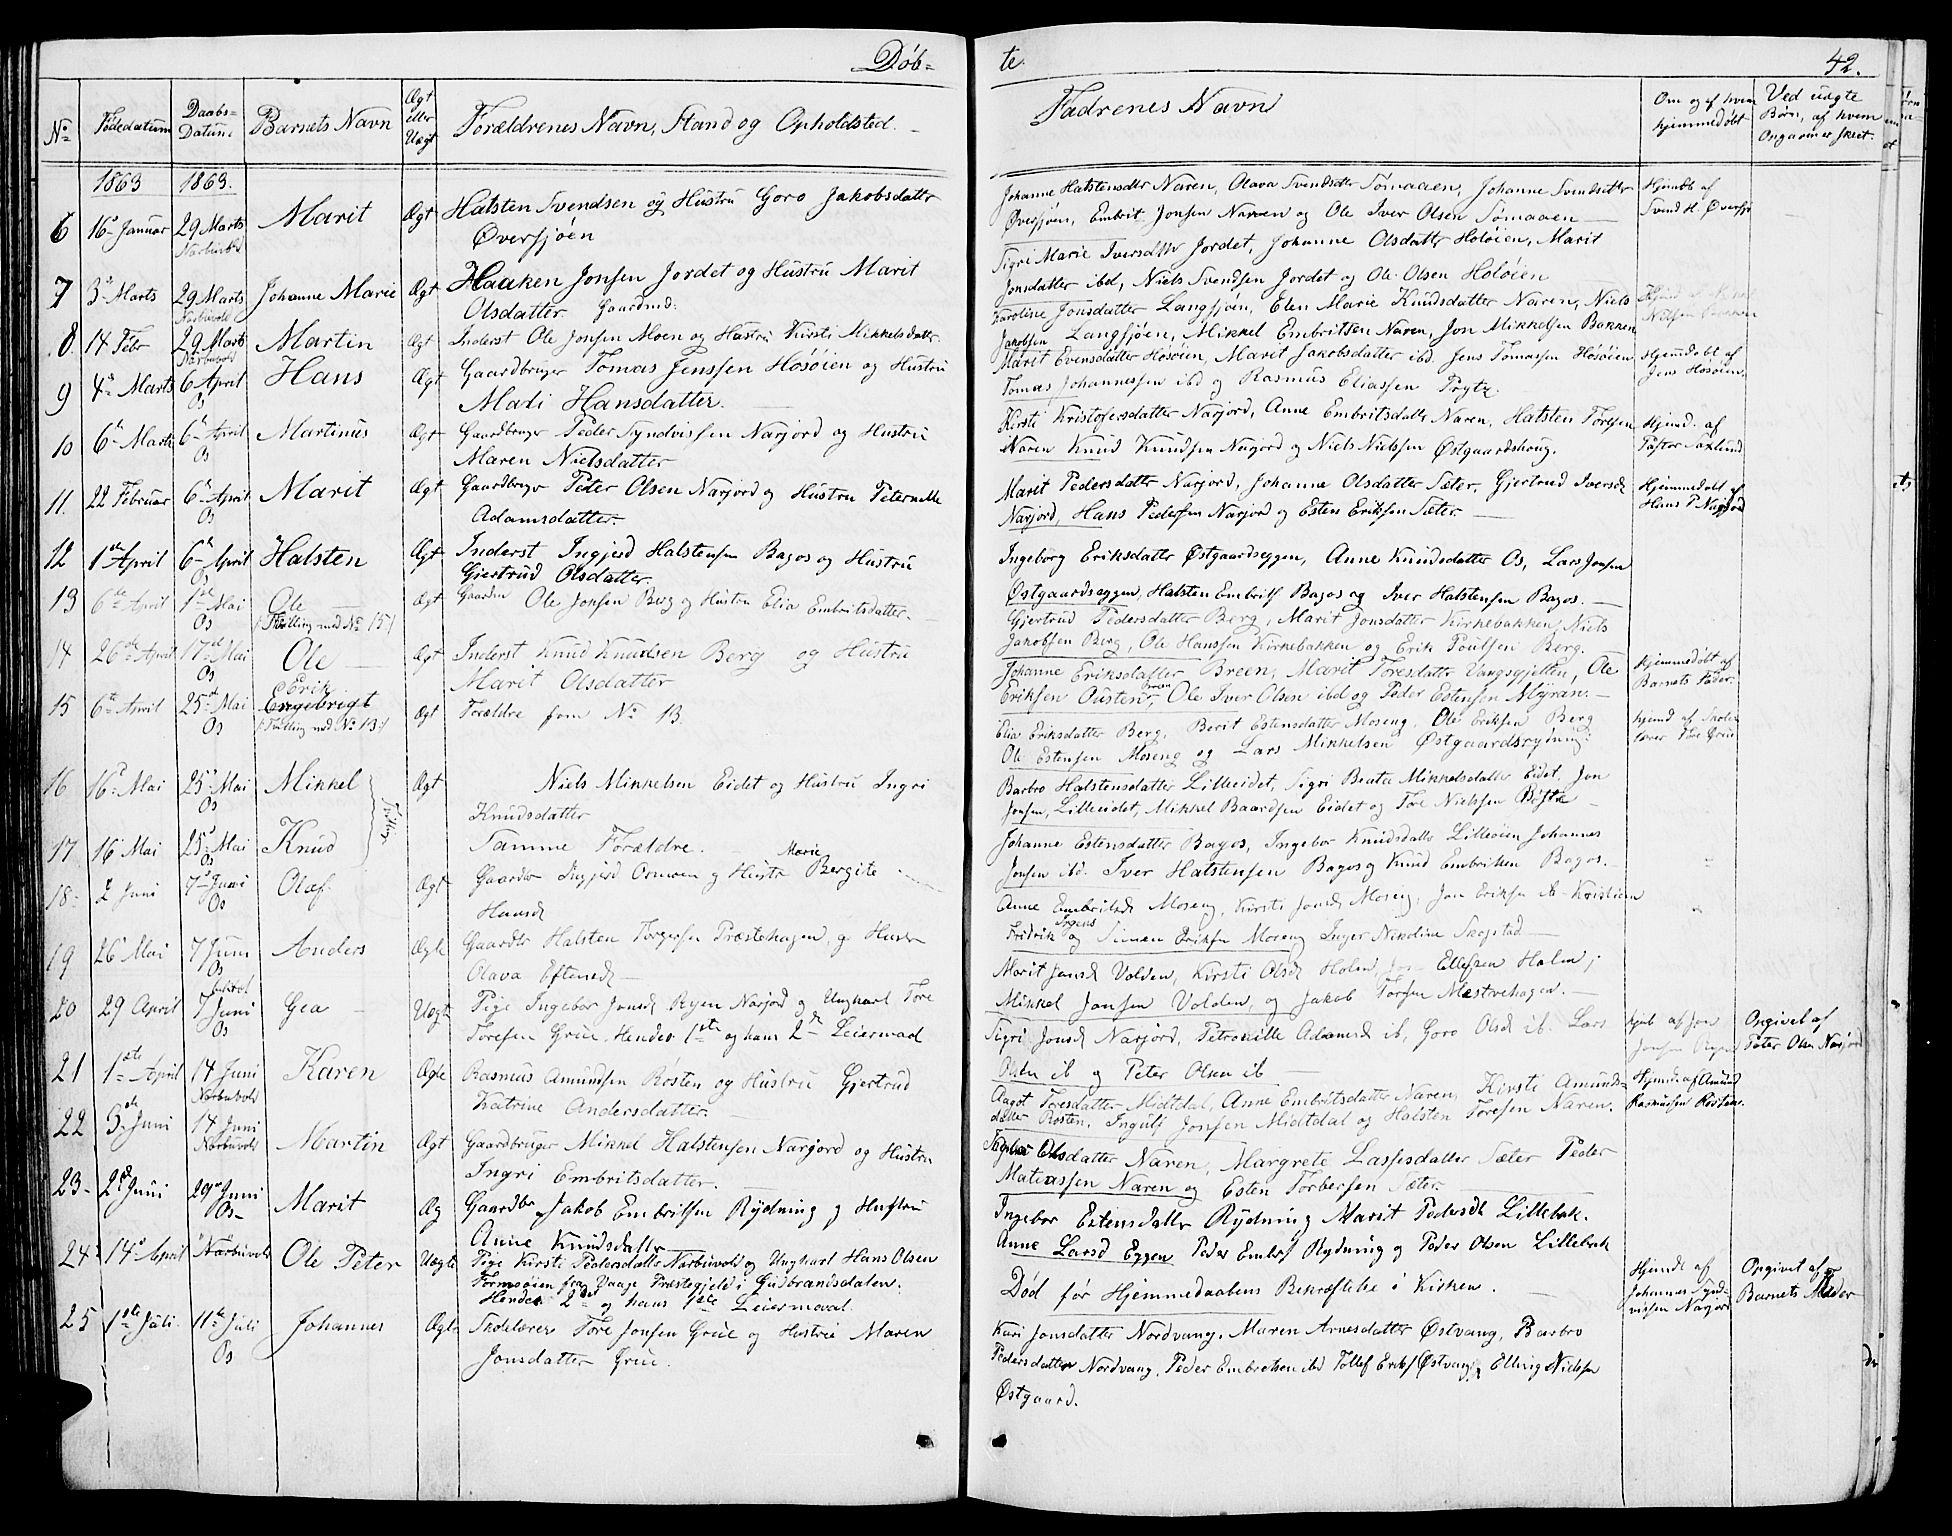 Døb-
te.
42.
No
Fødedatum
Daabs-
Datum.
Barnets Navn
Ægt
eller
Uægt
Forældrenes Navn, Stand og Opholdsted.
Fadrenes Navn
Om og af hvem
hjemmedøbt
Ved uægte
Børn, af hvem
Opgaven er skeet.
1863
1863.
6 16de Januar 29 Marts Marit Ægt Halsten Svendsen og Hustru Goro Jakobsdatter
Narbuvold
Øversjøen
Johanne Halstensdtr Naren, Olava Svendsdatter Sømaaen, Johanne Svendsdatter
Øversjøen, Embrit Jonsen Narven og Ole Iver Olsen Sømaaen
Hjemdbt af
Svend H. Øversjø
7 3de Marts 29 Marts Johanne Marie Ægt Haaken Jonsen Jordet og Hustru Marit
Narbuvold
Olsdatter Gaardmd:
Sigri Marie Iversdttr Jordet, Johanne Olsdatter Holøien, Marit
Jonsdatter ibd, Niels Svendsen Jordet og Ole Olsen Holøien
8. 14 Febr 29 Marts Martin Ægt Inderst Ole Jonsen Moen og Hustru Kirsti Mikkelsdatter
Narbuvold
Karoline Jonsdatter Langsjøn, Elen Marie Knudsdatter Naren, Niels
Jakobsen Langsjøen, Mikkel Embritsen Naren, Jon Mikkelsen Bakken
9 4de Marts 6 April Hans Ægt Gaardbruger Tomas Jenssen Hosøien og Hustru
Os
Mali Hansdatter.
Marit Evensdatter Hosøien, Marit Jakobsdatter ibd Jens Tomassen Hosøien
Tomas Johannessen ibd og Rasmus Eliassen Trytz.
Hjemdøbt af
Jens Hosøien
10 6te Marts 6te April Martinus Ægt Gaardbruger Peder Syndvissen Narjord og Hustru
Os
Maren Nielsdatter
Kirsti Kristofersdatter Narjord, Anne Embritsdatter Naren, Halsten Toresen
Naren Knud Knudsen Narjord og Niels Nielsen Østgaardshoug.
Hjemd. af
Pastor Saxlund
11. 22 Februar 6te April Marit Ægt Gaardbruger Peter Olsen Narjord og Hustru Peternille
Os
Adamsdatter.
Marit Pedersdatter Narjord, Johanne Olsdatter Sæter, Gjertrud Iversd
Narjord, Hans Pedersen Narjord og Esten Eriksen Sæter.
Hjemmedøbt af
Hans P Narjord
12 1ste April 6te April Halsten Ægt Inderst Ingjerd Halstensen Bagos og Hustru
Os
Gjertrud Olsdatter.
Ingeborg Eriksdatter Østgaardseggen, Anne Knudsdatter Os, Lars Jonsen
Østgaardseggen, Halsten Embrits Bagos og Iver Halstensen Bagos.
13 6te April 1ste Mai Ole Ægt Gaardm Ole Jonsen Berg og Hustru Elia Embritsdatter.
Os
/: Tvilling med No 15 :/
Gjertrud Pedersdatter Berg, Marit Jonsdatter Kirkebakken, Niels
Jakobsen Berg, Ole Hanssen Kirkebakken og Erik Poulsen Berg.
14 26de April 17de Mai Ole Ægt Inderst Knud Knudsen Berg og Hustru
Os
Marit Olsdatter
Johanne Eriksdatter Breen, Marit Toresdatter Vangsgjelten, Ole
Eriksen Ousten, Ole Iver Olsen ibd og Peder Estensen Myran.
Hjemmedøbt af
Barnets Fader.
15 6te April 25de Mai Erik
Engebrigt Ægt Forældre som No 13.
Os
/: Tvilling med No 13 :/
Elia Eriksdatter Berg, Berit Estensdatter Moseng, Ole Eriksen Berg
Ole Estensen Moseng og Lars Mikkelsen Østgaardsrydning.
Hjemd af Skole-
lærer Tore Grue
16 16de Mai 25de Mai Mikkel Ægt Niels Mikkelsen Eidet og Hustru Ingri
Os
Knudsdatter
Tvilling
Barbro Halstensdatter Lilleeidet, Sigri Beate Mikkelsdatter Eidet, Jon
Jonsen, Lilleeidet, Mikkel Baardsen Eidet og Tore Nielsen Røste
17 16 Mai 25de Mai Knud Samme Forældre.
Os
Johanne Estensdatter Bagos, Ingebor Knudsdatter Lilleøien Johannes
Jonsen ibd. Iver Halstensen Bagos og Knud Embritsen Bagos.
18. 2 Juni 7de Juni Olaf Ægt Gaardbr Ingjerd Ormoen og Hustr Marie Bergite
Os
Hansd
Anne Embritsd Moseng, Kirsti Jonsd Moseng, Jon Eriksen ib Kristian
Fridrik og Simen Eriksen Moseng Inger Nikoline Skogstad
19 26 Mai 7 Juni Anders Ægte Gaardbr Halsten Torgersen Præstehagen, og Hustr
Os
Olava Eftensd
Marit Jonsd Volden, Kirsti Olsd Holm, Jon Ellefsen Holm,
Mikkel Jonsen Volden, og Jakob Torsen Mæstvehagen.
20 29 April 7 Juni Gea Uægt Pige Ingebor Jonsd Ryen Narjord og Ungkarl Tore
Os
Toresen Grue. Hendes 1ste og hans 2de Leiermaal
Sigri Jonsd Narjord, Petronille Adamsd ib, Goro Olsd ib. Lars
Olsen ib og Peter Olsen ib
Hjeb af Jon
Jonsen Ryen
Opgivet af
Peter Olsen Narjord
21 1ste April 14 Juni Karen Ægte Rasmus Amundsen Røsten og Hustru Gjertrud
Narbuvold
Katrine Andersdatter.
Aagot Toresdatter Midtdal, Anne Embritsdatter Naren, Kirsti Amunds-
datter Røsten, Ingulf Jonsen Midtdal og Halsten Toresen Naren.
Hjemd af Amund
Rasmussen Røsten.
22 3de Juni 14 Juni Martin Ægt Gaardbruger Mikkel Halstensen Narjord og Hustru
Narbuvold
Ingri Embritsdatter.
Olsdatter Naren, Margrete Lassesdatter Sæter Peder
Matiassen Naren og Esten Torbersen Sæter
23 2de Juni 29de Juni Marit Æg Gaardbr Jakob Embritsen Rydning og Hustru
Os
Anne Knudsdatter
Ingebor Estensdatter Rydning Marit Pedersdt Lillebek.
Anne Larsd Eggen Peder Embs Rydning og Peder Olsen Lillebek
24 14de April Narbuvold Ole Peter Uægte Pige Kirsti Pedersdatter Narbuvold og Ungkarl Hans Olsen
Formoøien fra Vaage Præstegjeld i Gudbrandsdalen.
Hendes 2det og hans 1ste Leiermaal.
Død før Hjemmedaabens Bekræftelse i Kirken.
Hjemdt af
Johannes Synd-
vissen Narjord
Opgivet af
Barnets Moder
25 1ste Juli 11te Juli Johannes Ægte Skolelærer Tore Jonsen Grue og Hustru Maren
Os
Jonsdatter Grue.
Kari Jonsdatter Nordvang, Maren Arnesdatter Østvang, Barbro
Pedersdatter Nordvang, Peder Embretsen ibd Tollef Eriks Østvang og Elling Nielsen
Østgaard.